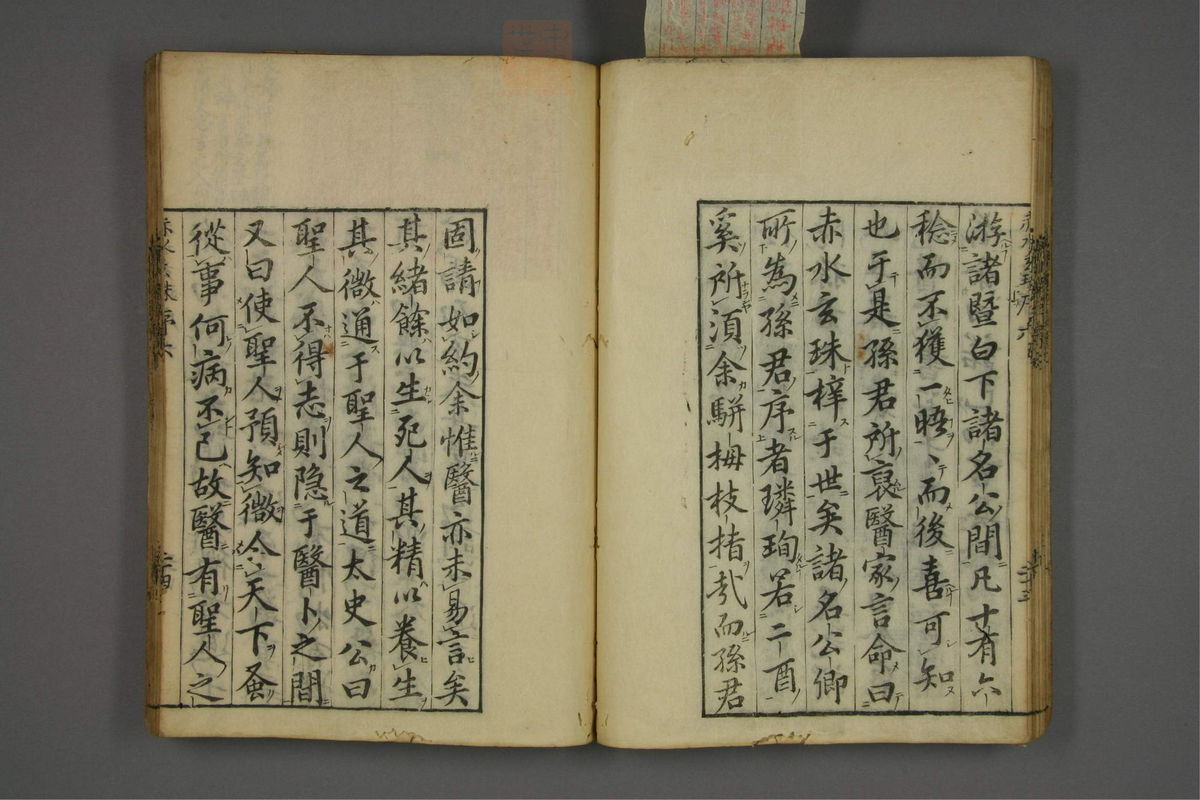 游諸暨白下諸名公間凡十有六
稔而不獲一晤〻而後喜可知
也于是孫君所裒醫家言命曰
赤水玄珠梓于世矣諸名公卿
所為孫君序者璘珣若二酉
奚所須余駢拇枝指哉而孫君
固請如約余惟醫亦未易言矣
其緒餘以生死人其精以養生
其微通于聖人之道太史公曰
聖人不得志則隐于醫卜之間
又曰使聖人預知微令天下蚤
從事何病不已故醫有聖人之